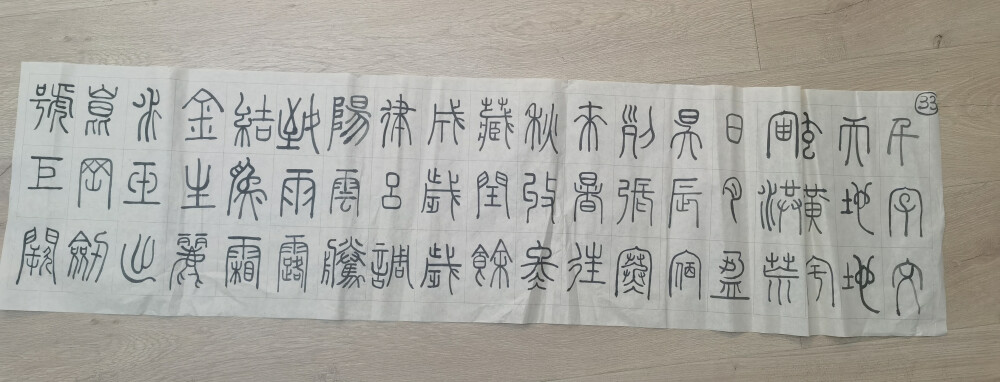 33
千字文
天地地
玄黃宇
宙洪荒
日月盈
昃辰宿
列張寒
來暑往
秋收冬
藏閏餘
成歲歲
律呂調
陽雲騰
致雨露
結為霜
金生麗
水玉出
崑岡劍
號巨闕